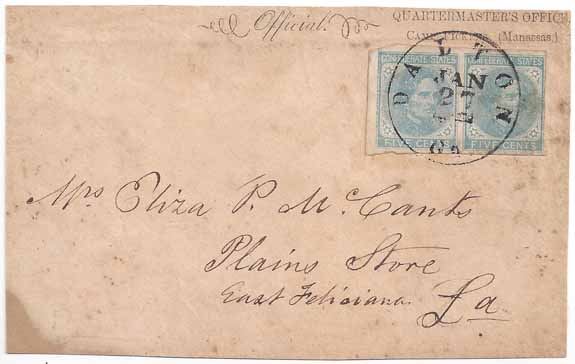 Official.
QUARTERMASTER'S OFFICE,
CAMP PICKENS, (Manassas.)
CONFEDERATE STATES CONFEDERATE STATES
DALTON
JAN
27
Ga
FIVE CENTS FIVE CENTS
Mrs Eliza P. McCants
Plains Store
East Feliciana La